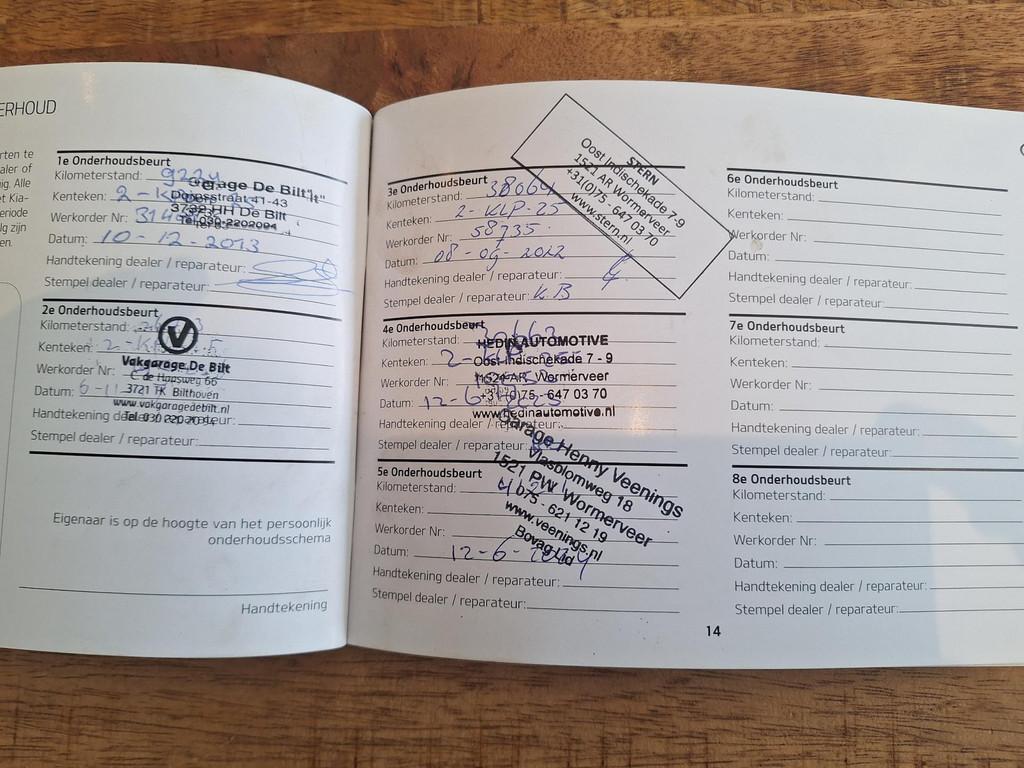 ERHOUD
rten te
aler of
ig. Alle
et Kia-
eriode
lg zijn
en.
1e Onderhoudsbeurt
Kilometerstand: 9224
Kenteken: 2-K
Werkorder Nr:
Datum: 10-12-2013
Handtekening dealer / reparateur:
Stempel dealer / reparateur:
Garage De Bilt
Dorpsstraat 41-43
3732 HH De Bilt
Tel.030-2202094
2e Onderhoudsbeurt
Kilometerstand:
Kenteken: 2-K
Werkorder Nr:
Datum: 6-11
Handtekening dealer / reparateur:
Stempel dealer / reparateur:
Vakgarage De Bilt
C de Haasweg 66
3721 TK Bilthoven
www.vakgaragedebilt.nl
Tel. 030 220 20 94
Eigenaar is op de hoogte van het persoonlijk
onderhoudsschema
Handtekening
3e Onderhoudsbeurt
Kilometerstand: 38064
Kenteken: 2-KLP-25
Werkorder Nr: 58735
Datum: 08-09-2022
Handtekening dealer / reparateur:
Stempel dealer / reparateur: K.B
STERN
Oost Indischekade 7-9
1521 AR Wormerveer
+31(0)75 - 647 03 70
www.stern.nl
4e Onderhoudsbeurt
Kilometerstand:
Kenteken: 2-
Werkorder Nr:
Datum: 12-6-
Handtekening dealer / reparateur:
Stempel dealer / reparateur:
HEDIN AUTOMOTIVE
Oost-Indischekade 7 - 9
1521 AR Wormerveer
+31(0)75 - 647 03 70
www.hedinautomotive.nl
5e Onderhoudsbeurt
Kilometerstand:
Kenteken:
Werkorder Nr:
Datum: 12-6-
Handtekening dealer / reparateur:
Stempel dealer / reparateur:
Garage Henny Veenings
Vlasblomweg 18
1521 PW Wormerveer
075 - 621 12 19
www.veenings.nl
Bovag lid
6e Onderhoudsbeurt
Kilometerstand:
Kenteken:
Werkorder Nr:
Datum:
Handtekening dealer / reparateur:
Stempel dealer / reparateur:
7e Onderhoudsbeurt
Kilometerstand:
Kenteken:
Werkorder Nr:
Datum:
Handtekening dealer / reparateur:
Stempel dealer / reparateur:
8e Onderhoudsbeurt
Kilometerstand:
Kenteken:
Werkorder Nr:
Datum:
Handtekening dealer / reparateur:
Stempel dealer / reparateur:
14